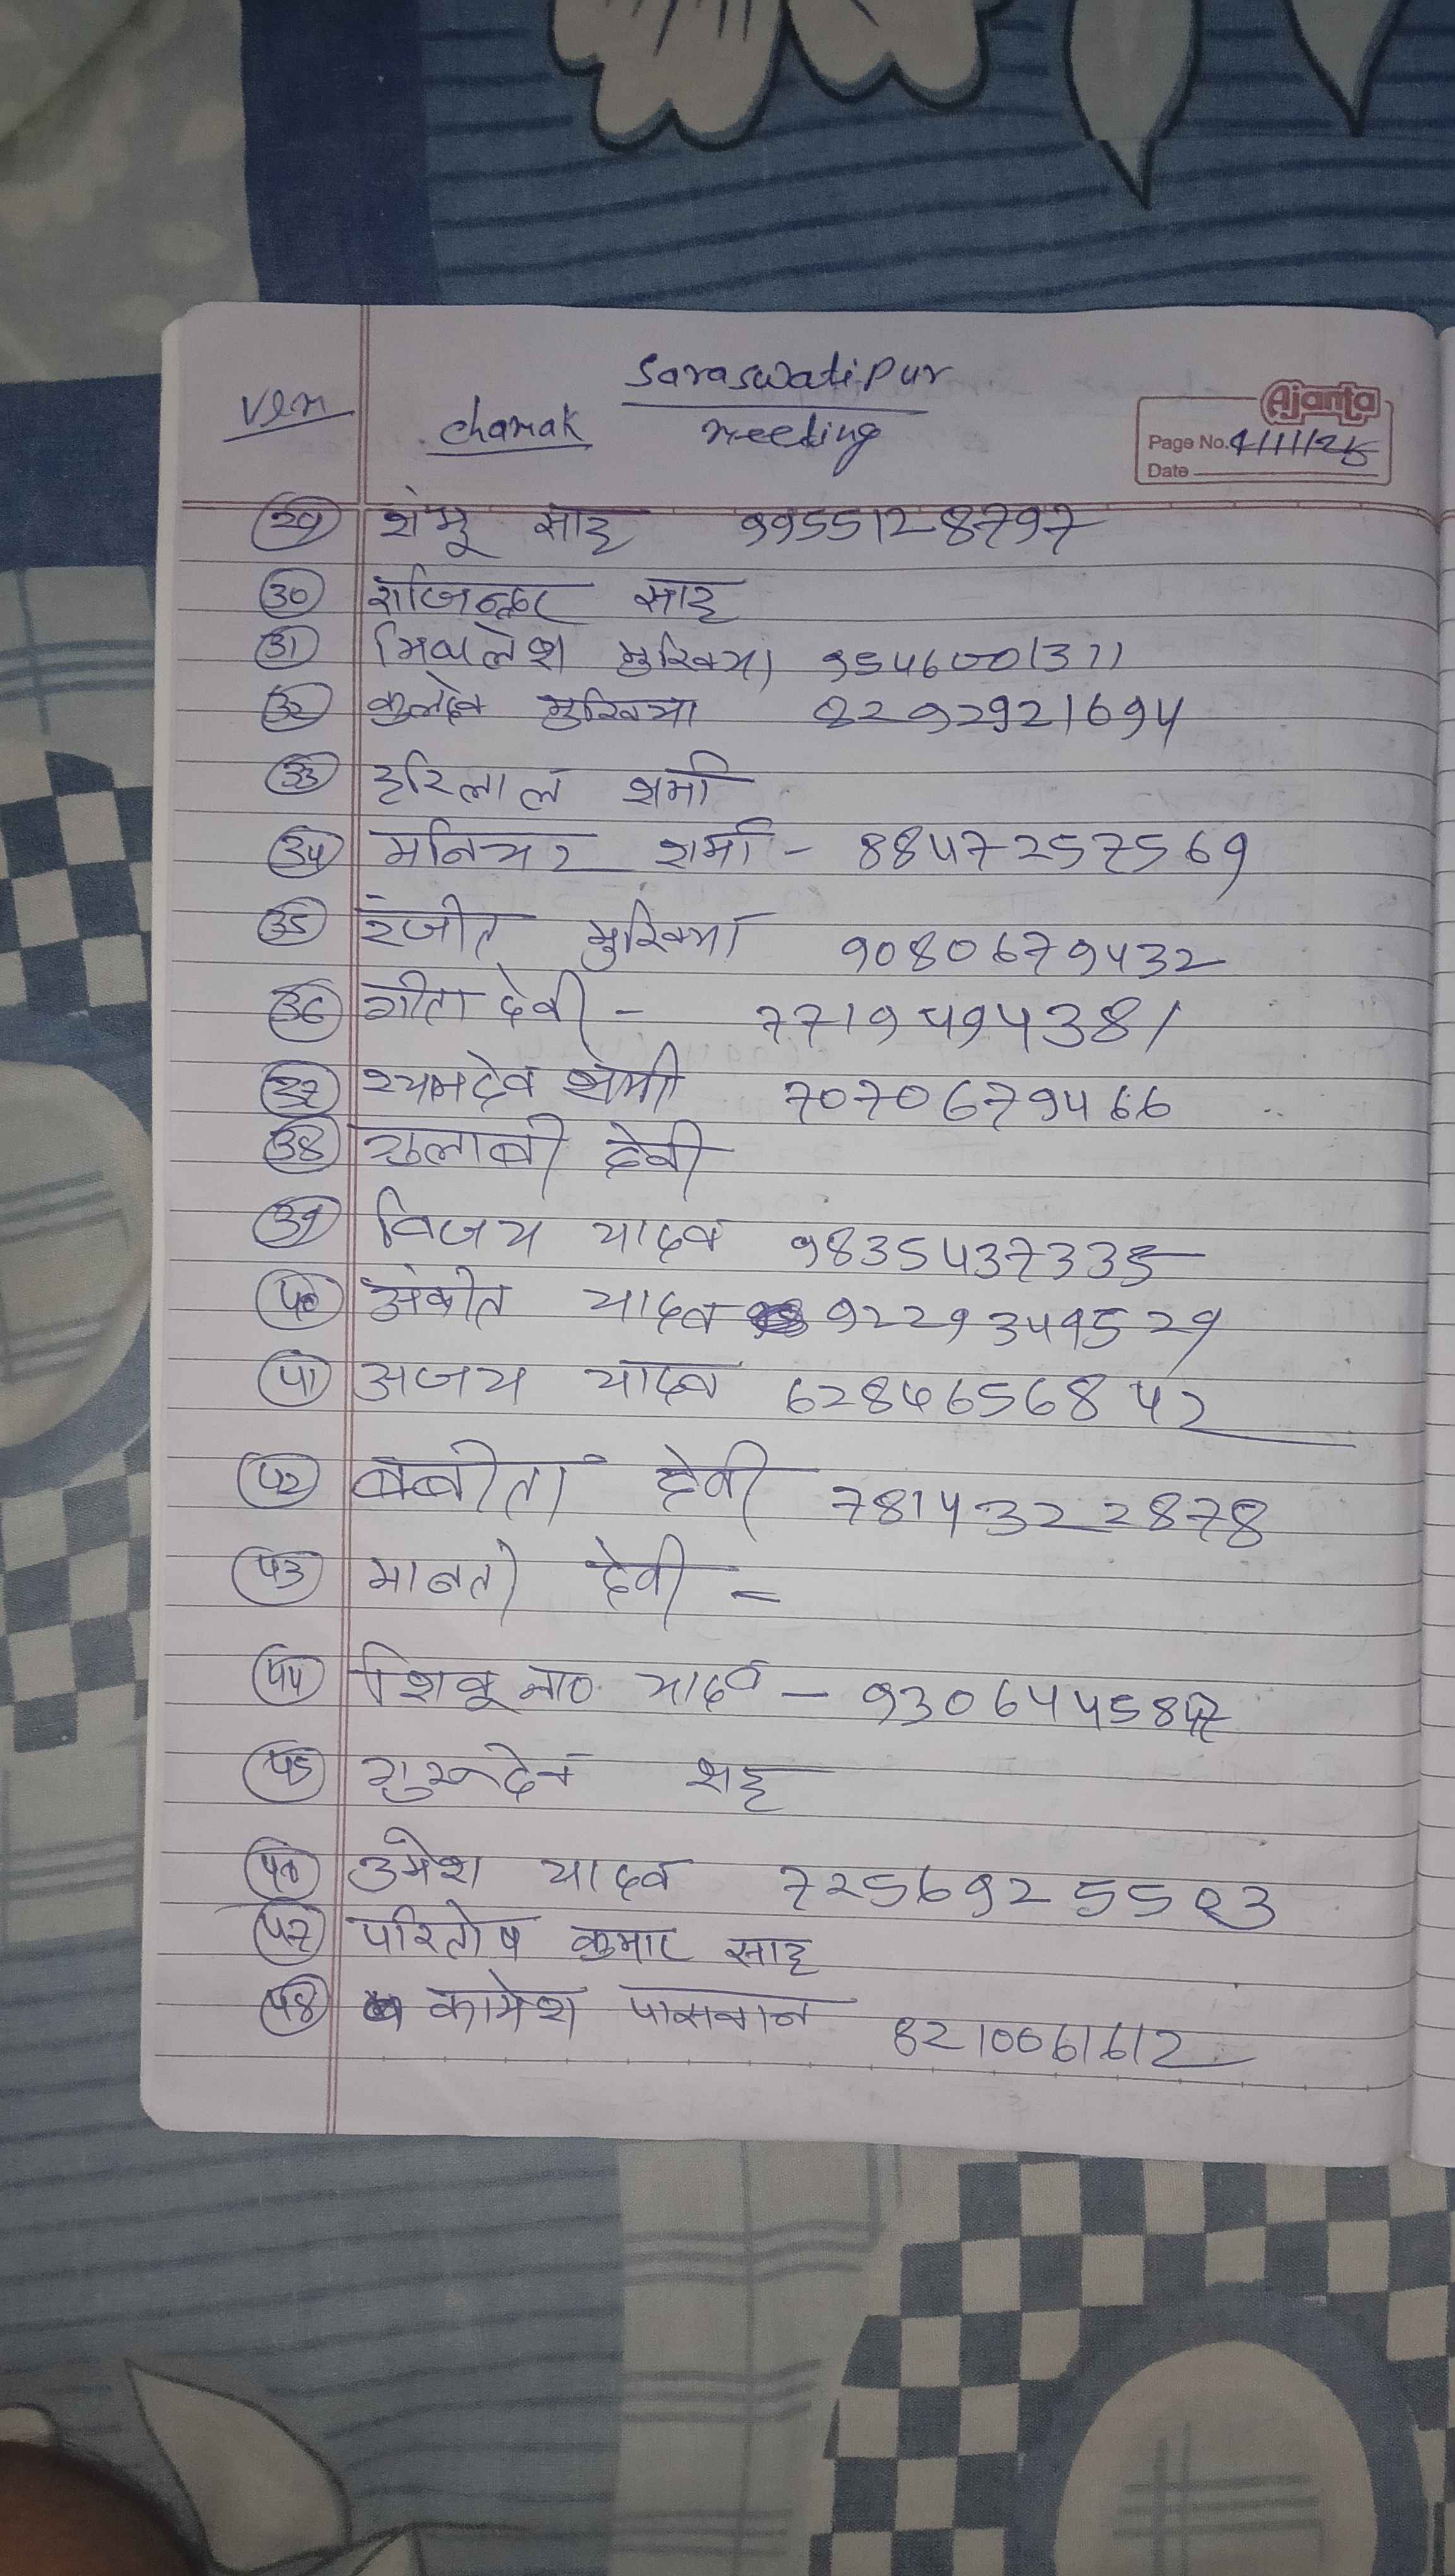 Saraswatipur
Ven chamak meeting
Ajanta
Page No. 4/11/25
Date
29 शंभू साह 9955128797
30 राजिन्द्र साह
31 मिथलेश मुखिया 9546001311
32 कुलदेव मुखिया 8292921694
33 हरिलाल शर्मा
34 मनियर शर्मा - 8847257569
35 रंजीत मुखिया 9080679432
36 गीता देवी - 7719494381
37 श्यामदेव शर्मा 7070679466
38 गुलाबी देवी
39 विजय यादव 9835437335
40 अंकीत यादव 9229349529
41 अजय यादव 6284656842
42 बबीता देवी 7814322878
43 मानती देवी =
44 शिबू नाथ यादव - 9306445847
45 गुरूदेव शाह
46 उमेश यादव 7256925503
47 परितोष कुमार साह
48 कामेश पासवान 8210061612